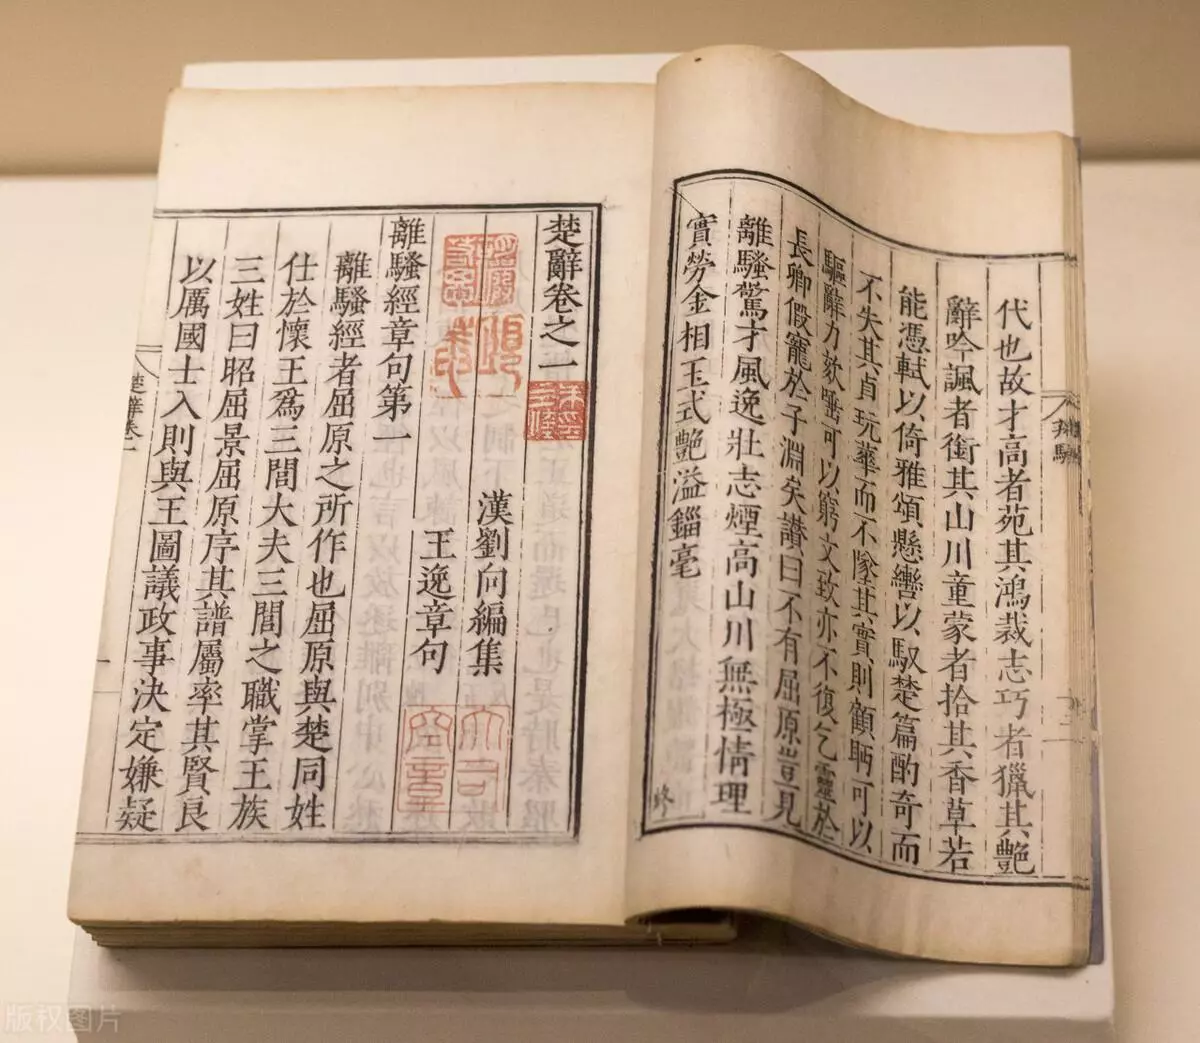 代也故才高者苑其鴻裁志巧者獵其艷
辭吟諷者銜其山川童蒙者拾其香草若
能憑軾以倚雅頌懸轡以馭楚篇酌奇而
不失其貞玩華而不墜其實則顧眄可以
驅辭力欬唾可以窮文致亦不復乞靈於
長卿假寵於子淵矣讚曰不有屈原豈見
離騷驚才風逸壯志煙高山川無極情理
實勞金相玉式艷溢錙毫
終
楚辭卷之一
漢劉向編集
王逸章句
離騷經章句第一
離騷經者屈原之所作也屈原與楚同姓
仕於懷王為三閭大夫三閭之職掌王族
三姓曰昭屈景屈原序其譜屬率其賢良
以厲國士入則與王圖議政事決定嫌疑
楚辭卷一
一
版权图片